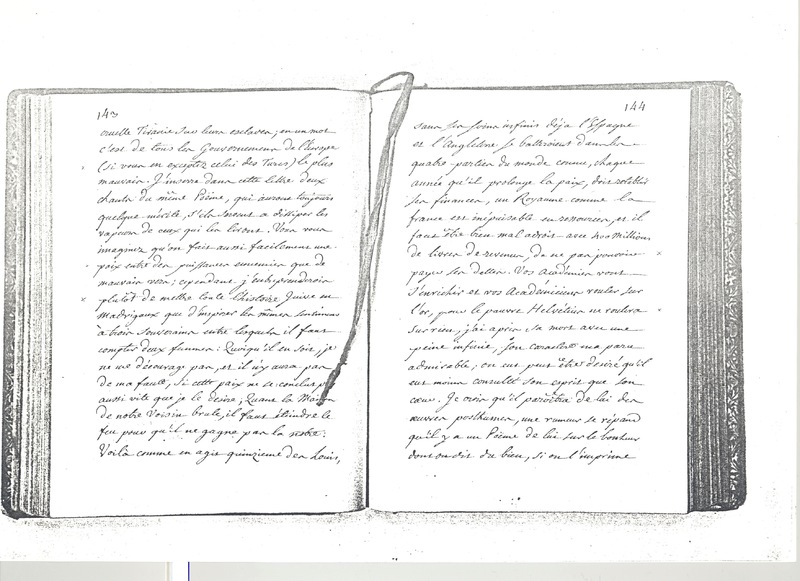 143
cruelle Tiranie sur leurs esclaves; en un mot
c'est de tous les Gouvernemens de l'Europe
(si vous en exceptez celui des Turcs) le plus
mauvais. J'insere dans cette lettre deux
chants du même Poëme, qui auront toujours
quelque mérite, s'ils servent a dissiper les
vapeurs de ceux qui les liront. Vous vous
imaginez qu'on fait aussi facilement une
paix entre des puissances ennemies que de
mauvais vers; cependant j'entreprenderois
plutôt de mettre toute l'histoire Juive en
Madrigaux que d'inspirer les mêmes sentimens
à trois Souverains entre lesquels il faut
compter deux femmes: Quoiqu'il en soit, je
ne me décourage pas, et il n'y aura pas
de ma faute, si cette paix ne se conclut pas
aussi vite que je le desire; Quand la Maison
de notre Voisin brule, il faut éteindre le
feu pour qu'il ne gagne pas la notre.
Voilà comme en agit quinzieme des Louis,
144
sans ses soins infinis déja l'Espagne
et l'Angleterre se battroient dans les
quatre parties du monde connu, chaque
année qu'il prolonge la paix, doit rétablir
ses finances, un Royaume comme la
france est inépuisable en ressources, et il
faut être bien mal adroit avec 400 millions
de livres de revenus, de ne pas pouvoir
payer ses dettes. Vos Académies vont
s'enrichir et vos Academiciens rouler sur
l'or, pour le pauvre Helvetius ne roulera
sur rien, j'ai apris sa mort avec une
peine infinie, son caractere m'a paru
admirable; on eut peut être désiré qu'il
eut moins consulté son esprit que son
cœur. Je crois qu'il paroitra de lui des
œuvres posthumes, une rumeur se répand
qu'il y a un Poëme de lui sur le bonheur
dont on dit du bien, si on l'imprime